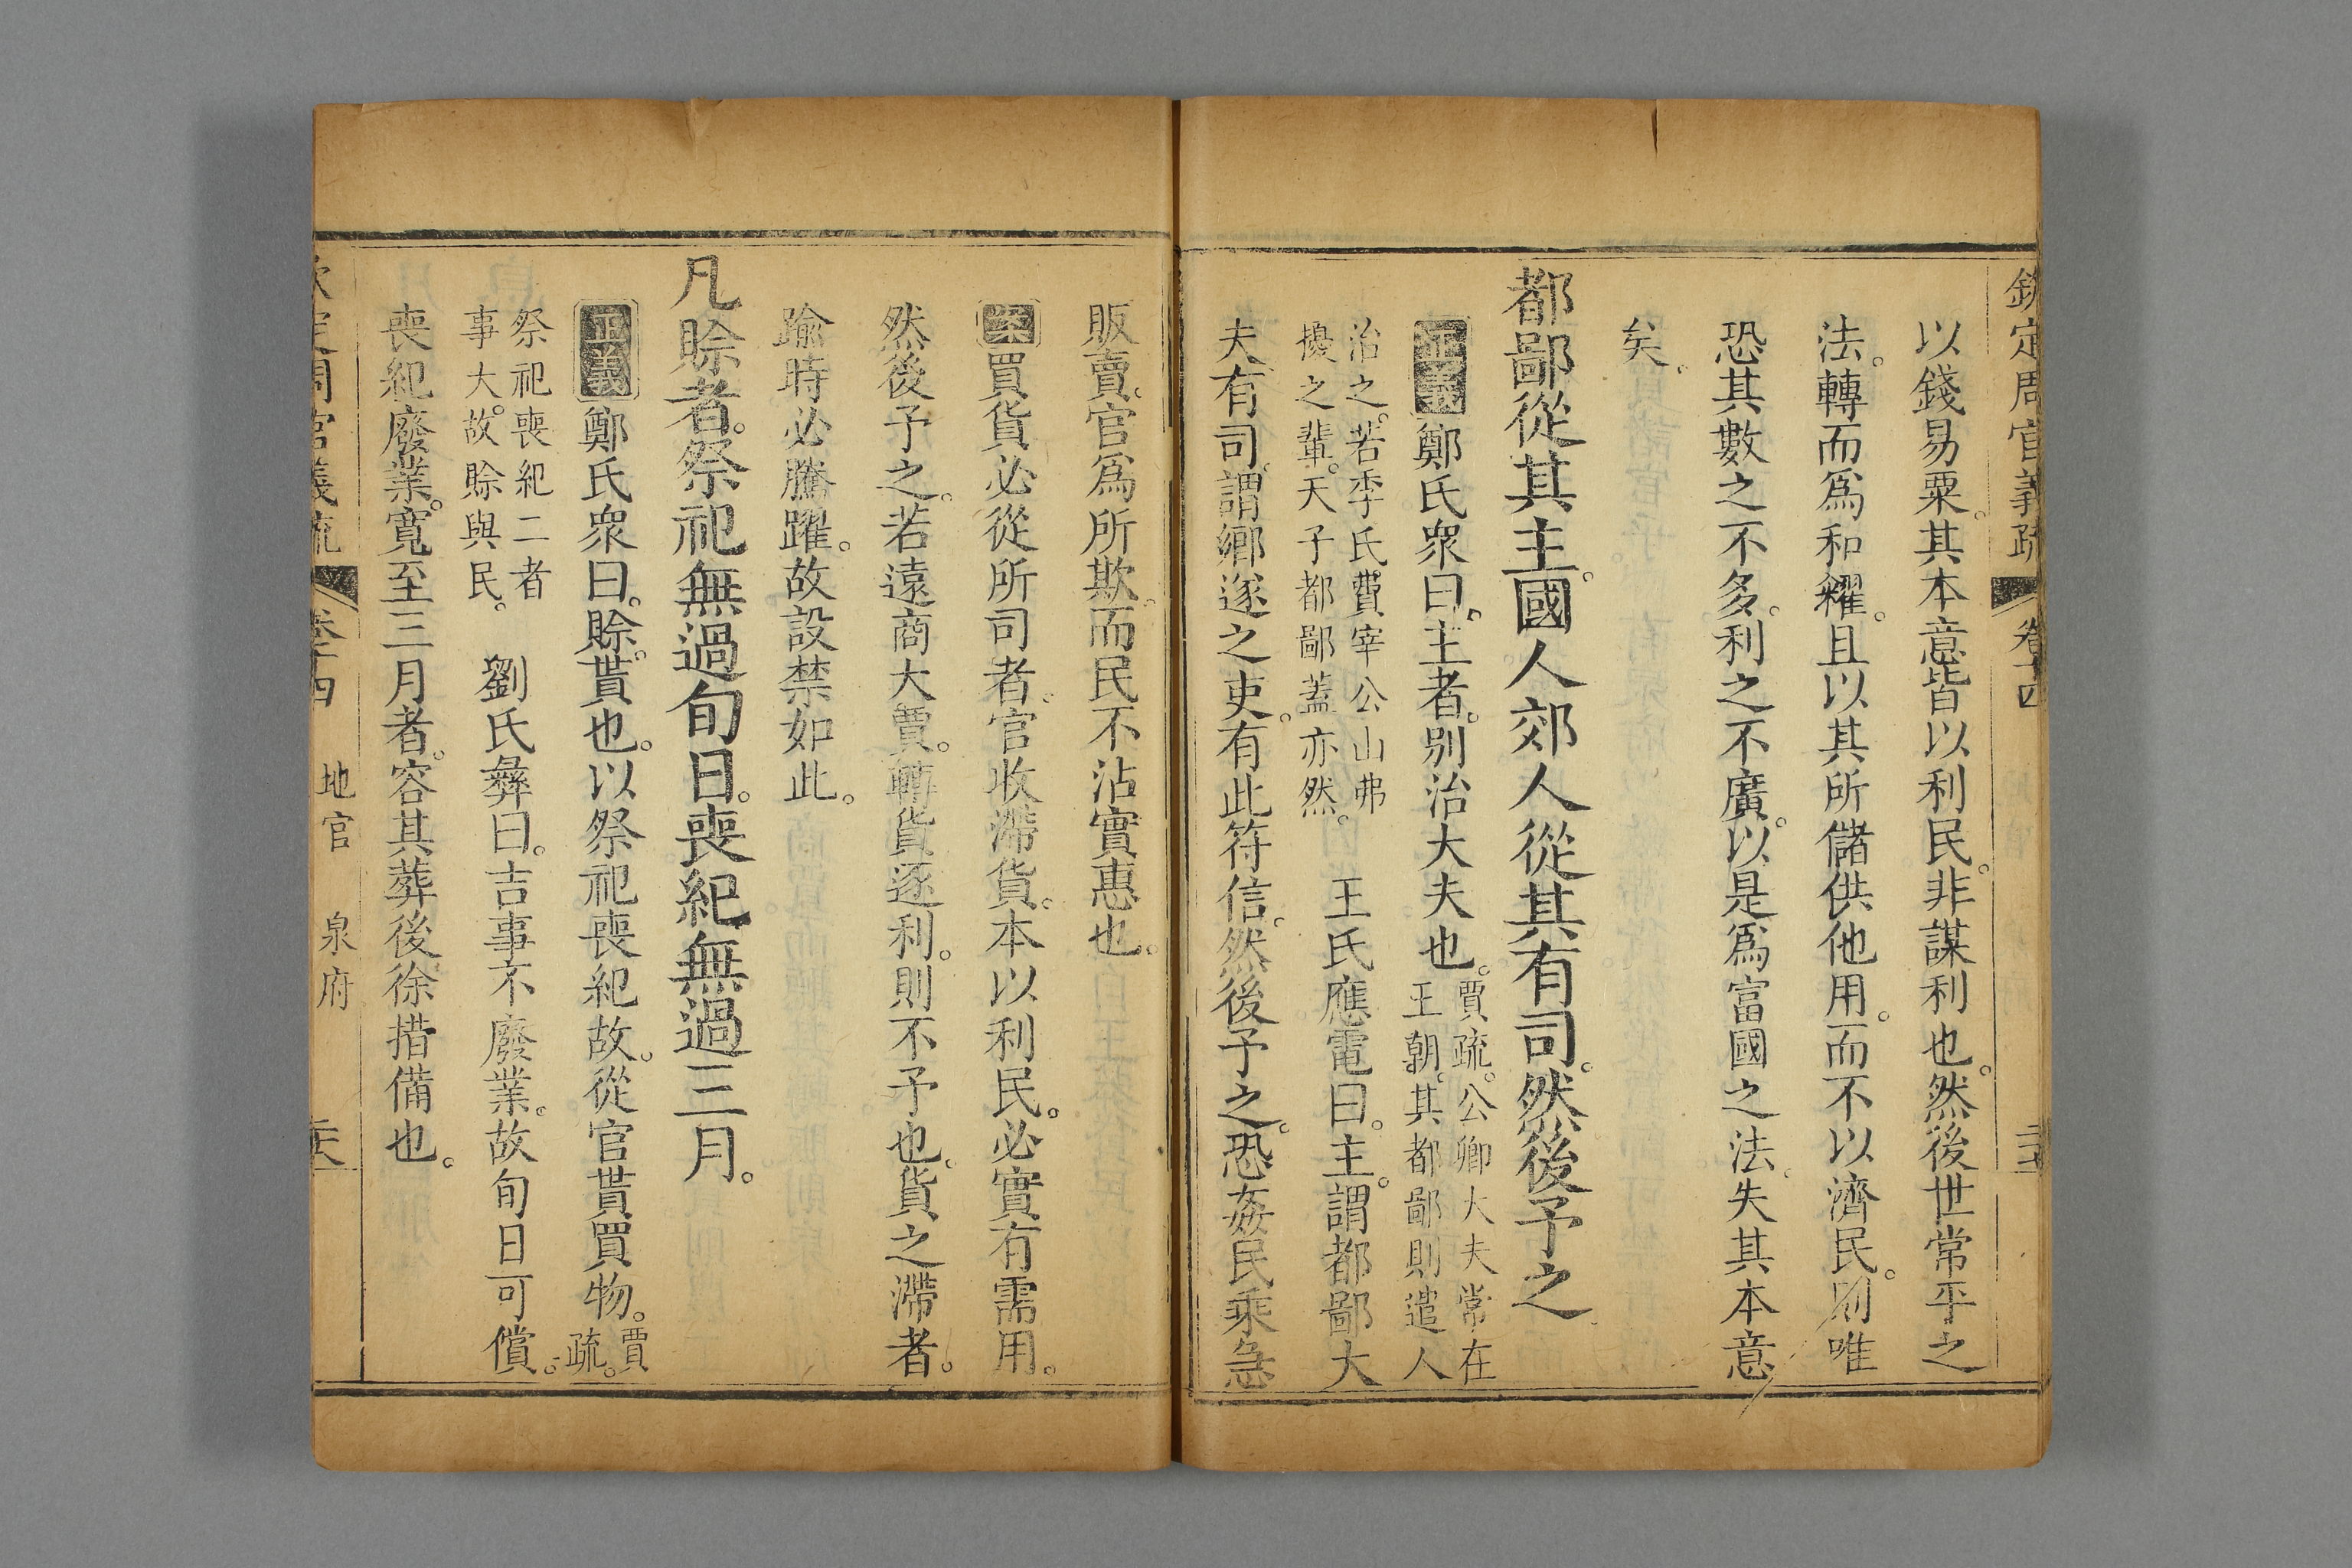 欽定周官義疏 卷十四
以錢易粟。其本意皆以利民。非謀利也。然後世常平之
法。轉而爲和糴。且以其所儲供他用。而不以濟民。則唯
恐其數之不多。利之不廣。以是爲富國之法。失其本意
矣。
都鄙從其主。國人郊人從其有司。然後予之
正義鄭氏衆曰。主者。别治大夫也。賈疏。公卿大夫常在
王朝。其都鄙則遣人
治之。若季氏費宰公山弗
擾之輩。天子都鄙蓋亦然。 王氏應電曰。主。謂都鄙大
夫。有司。謂鄉遂之吏。有此符信。然後予之。恐姦民乘急
販賣。官爲所欺。而民不沾實惠也。
案買貨必從所司者。官收滯貨。本以利民。必實有需用。
然後予之。若遠商大賈。轉貨逐利。則不予也。貨之滯者。
踰時必騰躍。故設禁如此。
凡賒者。祭祀無過旬日。喪紀無過三月。
正義鄭氏衆曰。賒。貰也。以祭祀喪紀故。從官貰買物。賈
疏。
祭祀喪紀二者
事大。故賒與民。 劉氏彝曰。吉事不廢業。故旬日可償。
喪紀廢業。寬至三月者。容其葬後徐措備也。
欽定周官義疏 卷十四 地官 泉府 二六